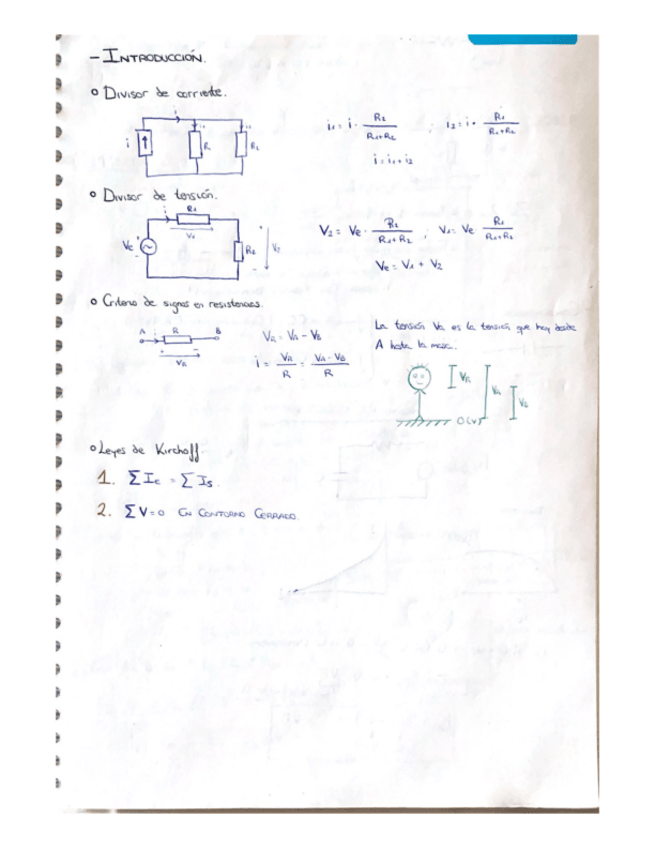 - INTRODUCCIÓN.
o Divisor de corriente.
i₁ = i · R₂ / (R₁+R₂) ; i₂ = i · R₁ / (R₁+R₂)
i = i₁ + i₂
i
o Divisor de tensión.
i R₁
V₁
Ve
R₂ V₂
V₂ = Ve · R₂ / (R₁+R₂) , V₁ = Ve R₁ / (R₁+R₂)
Ve = V₁ + V₂
o Criterio de signos en resistencias.
A i R B
+ -
VR
VR = VA - VB
i = VR / R = (VA - VB) / R
La tensión VA es la tensión que hay desde
A hasta la masa.
VR VA VB
0(V)
o Leyes de Kirchoff.
1. ∑Ie = ∑Is.
2. ∑V=0 EN CONTORNO CERRADO.